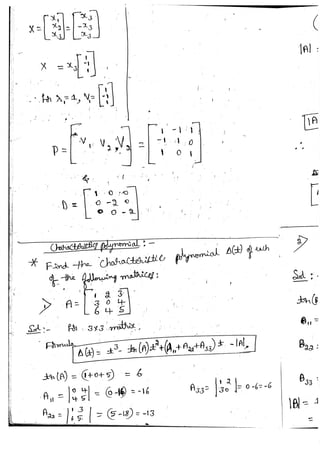 X = [x₁ x₂ x₃] = [x₃ -x₃ x₃]
X = x₃ [1 -1 1]
∴ for λ₁ = 1, V₁ = [1 -1 1]
P = [V₁ V₂ V₃] = [1 -1 1
-1 1 0
1 0 1]
&
D = [1 0 0
0 -2 0
0 0 -2]
Characteristics polynomial :-
* Find the characteristic polynomial Δ(t) of each
of the following matrices:
1> A = [1 2 3
3 0 4
6 4 5]
Sol:- for 3x3 matrix.
Formula Δ(t) = t³ - tr(A)t² + (A₁₁ + A₂₂ + A₃₃) t - |A|
tr(A) = (1+0+5) = 6
A₁₁ = |0 4
4 5| = (0-16) = -16
A₂₂ = |1 3
6 5| = (5-18) = -13
A₃₃ = |1 2
3 0| = 0-6 = -6
|A| =
|A
∴
2>
Sol :-
tr(
B₁₁ =
B₂₂ :
B₃₃ =
|B| = 1